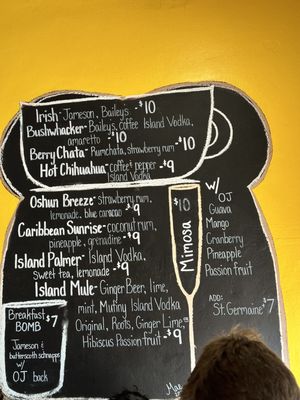 Irish- Jameson, Baileys -$10
Bushwhacker- Baileys, coffee, Island Vodka,
amaretto -$10
BerryChata- Rumchata, strawberry rum -$10
Hot Chihuahua- coffee, pepper -$9
Island Vodka
Oshun Breeze- strawberry rum,
lemonade, blue caracao -$9
Caribbean Sunrise- coconut rum,
pineapple, grenadine -$9
Island Palmer- Island Vodka,
sweet tea, lemonade -$9
Island Mule- Ginger Beer, lime,
mint, Mutiny Island Vodka
Original, Roots, Ginger Lime,
Hibiscus Passion fruit -$9
$10
Mimosa
w/
OJ
Guava
Mango
Cranberry
Pineapple
Passion fruit
ADD:
St. Germaine $7
Breakfast
BOMB $7
Jameson &
butterscotch schnapps
w/
OJ back
Mae